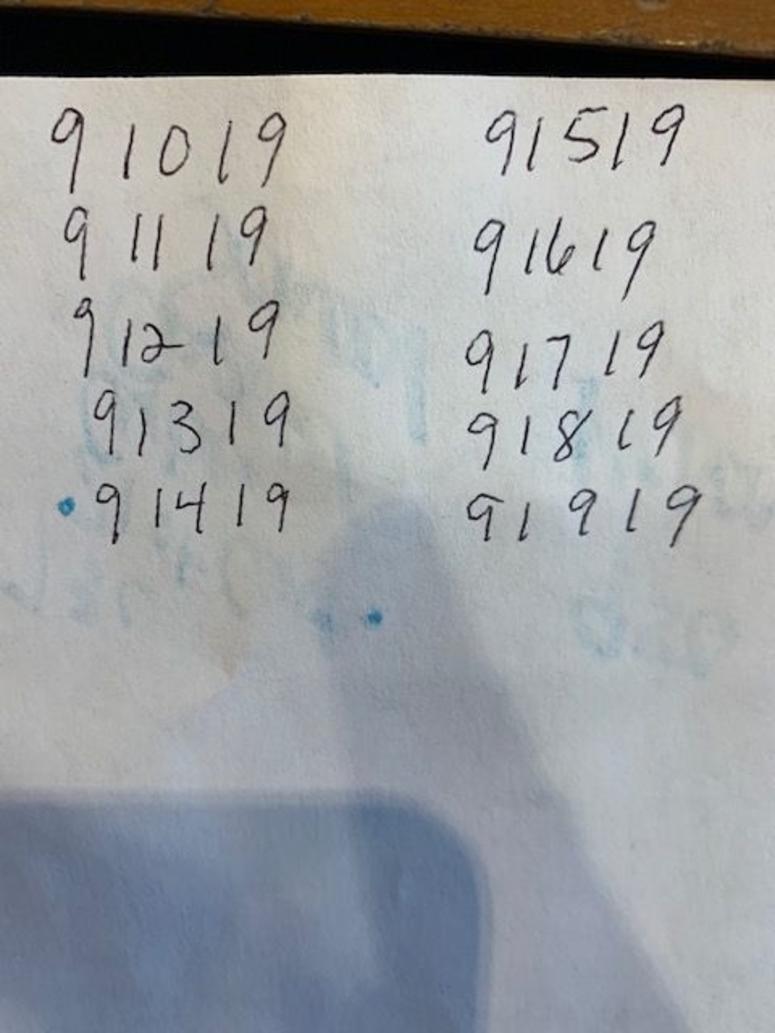 9 10 19
9 11 19
9 12 19
9 13 19
9 14 19
9 15 19
9 16 19
9 17 19
9 18 19
9 19 19